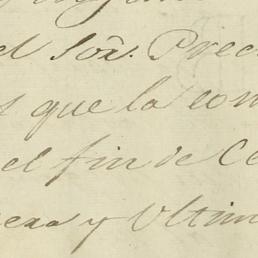 el Sor. Prec
que la con
el fin de Ce
era y Ultim